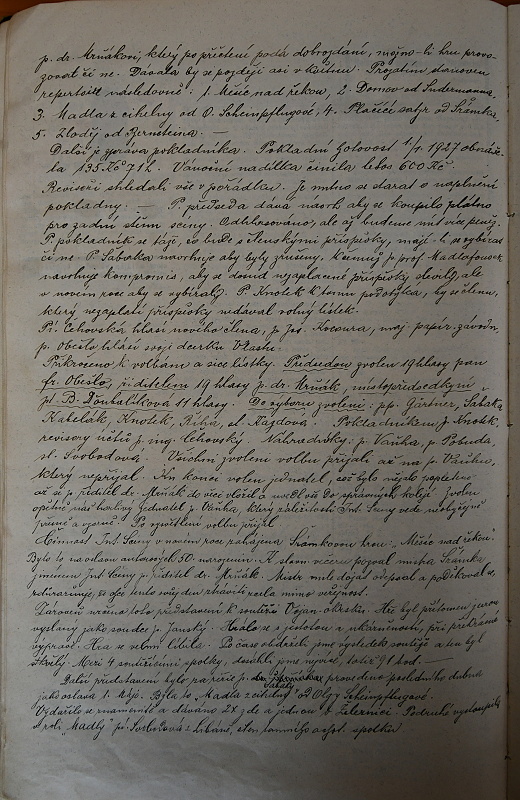 p. dr. Mrňákovi, který po přečtení podá dobrozdání, možno-li hru provo-
zovat či ne. Dávala by se později asi v květnu. Prozatím stanoven
repertoir následovně: 1. Měsíc nad řekou, 2. Domov od Sudermanna,
3. Madla z cihelny od O. Scheinpflugové, 4. Plačící satyr od Šrámka,
5. Zloděj od Bernsteina. —
Další je zpráva pokladníka. Pokladní hotovost 1/1. 1927 obnáše-
la 135 Kč 71 h. Vánoční nadílka činila letos 600 Kč.
Revisoři shledali vše v pořádku. Je nutno se starat o naplnění
pokladny. — P. předseda dává návrh, aby se koupilo plátno
pro zadní stěnu sceny. Odhlasováno, ale až budeme míti více peněz.
P. pokladník se táže, co bude s členskými příspěvky, mají-li se vybírat
či ne. P. Sabatka navrhuje aby byly zrušeny. p. prof. Madlafousek
navrhuje kompromis, aby se dosud nezaplacené příspěvky slevily, ale
v novém roce aby se vybíraly. P. Knotek k tomu podotýká, by se členu,
který nezaplatí příspěvky nedával volný lístek.
Pí. Čehovská hlásí nového člena, p. Jos. maj. papír. závodu,
p. Obešlo hlásí svoji dcerku Vlastu.
Přikročeno k volbám a sice lístky. Předsedou zvolen 19 hlasy pan
Fr. Obešlo, ředitelem 19 hlasy p. dr. Mrňák, místopředsedkyní
pí. B. Douhalíková 11 hlasy. Do výboru zvoleni: pp. Gärtner, Sabatka
Kabelák, Knotek, Říha, sl. Kazdová. Pokladníkem p. Knotek,
revisory účtů p. ing. Čehovský. Náhradníky: p. Vaňha, p. Pobuda,
sl. Svobodová. Všichni zvolení volbu přijali, až na p. Vaňhu,
který nepřijal. Ku konci volen jednatel, což bylo nějak popletené
až se p. ředitel dr. Mrňák do věci vložil a uvedl vše do správných kolejí. Zvolen
opětně náš horlivý jednatel p. Vaňha, který záležitosti Int. Sceny vede
přímě a vzorně. Po volbu přijal.
Činnost Int. Sceny v novém roce zahájena Šrámkovou hrou: „Měsíc nad řekou“.
Bylo to na oslavu autorových 50. narozenin. K slavn. večeru pozval mistra Šrámka
jmenem Int. Sceny p. ředitel dr. Mrňák. Mistr mile dojat odepsal a poděkoval,
že chce tento svůj den ztráviti zcela mimo veřejnost.
Zároveň určeno toto představení k soutěži Vojan. okrsku. Hře byl přítomen jurou
vyslaný jako soudce p. Janský. Hrálo se s jistotou a ukázněností,
Hra se velmi líbila. Po čase obdrželi jme výsledek soutěže a ten byl
skvělý. Mezi 4 soutěžícími spolky, dosáhli jsme nejvíce, totiž 91 bod. —
Další představení bylo za režie p. Sabatky provedeno posledního dubna
jako oslava 1. máje. Byla to „Madla z cihelny“ od Olgy Scheinpflugové.
Vydařilo se znamenitě a dáváno 2x zde a jednou v Železnici. Podruhé vystoupila
v roli „Madly“ pí. z Libáně, člen tamního ochot. spolku